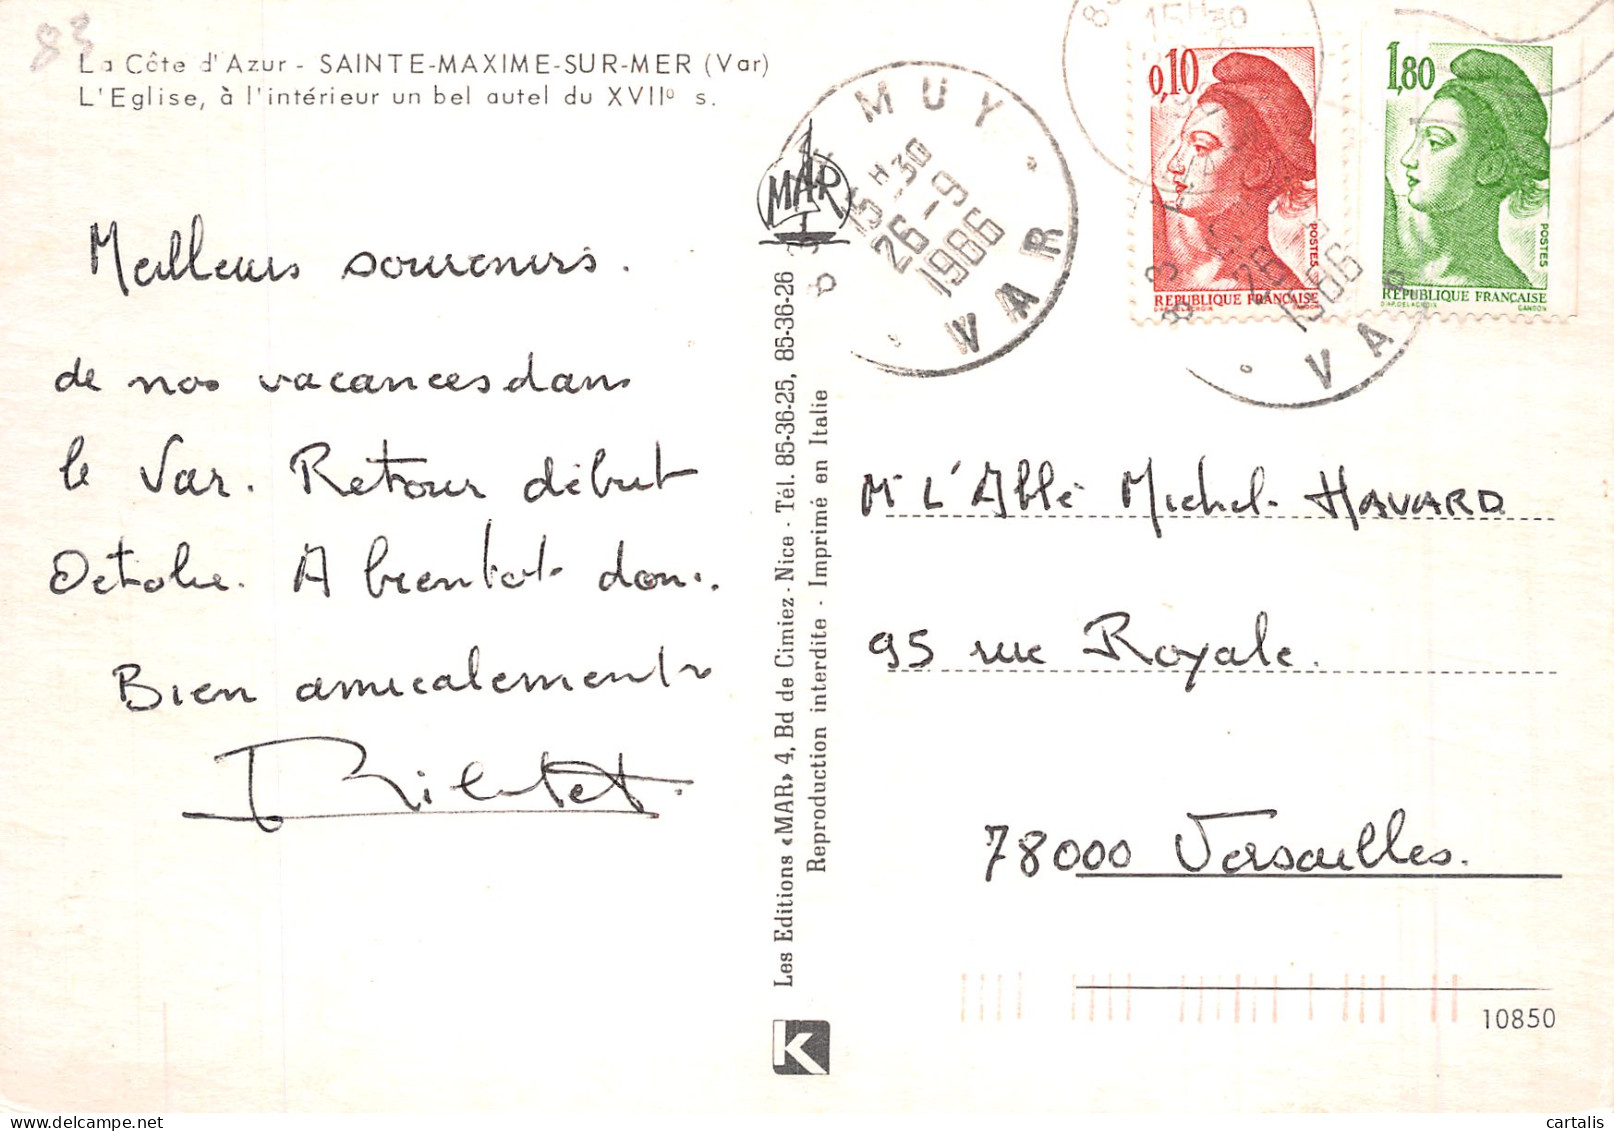 83
La Côte d'Azur - SAINTE-MAXIME-SUR-MER (Var)
L'Eglise, à l'intérieur un bel autel du XVII° s.
Meilleurs souvenirs.
de nos vacances dans
le Var. Retour début
Octobre. A bientôt donc.
Bien amicalement
MAR
Les Editions «MAR» 4, Bd de Cimiez - Nice - Tél. 85-36-25, 85-36-26
Reproduction interdite - Imprimé en Italie
K
MUY
15H30
26-9
1986
VAR
15H30
0,10
POSTES
REPUBLIQUE FRANÇAISE
D'AP. DELACROIX GANDON
1,80
POSTES
REPUBLIQUE FRANÇAISE
D'AP. DELACROIX GANDON
83
26
1986
VAR
Mr L'Abbé Michel HAVARD
95 rue Royale.
78000 Versailles.
10850
cartalis
delcampe.net